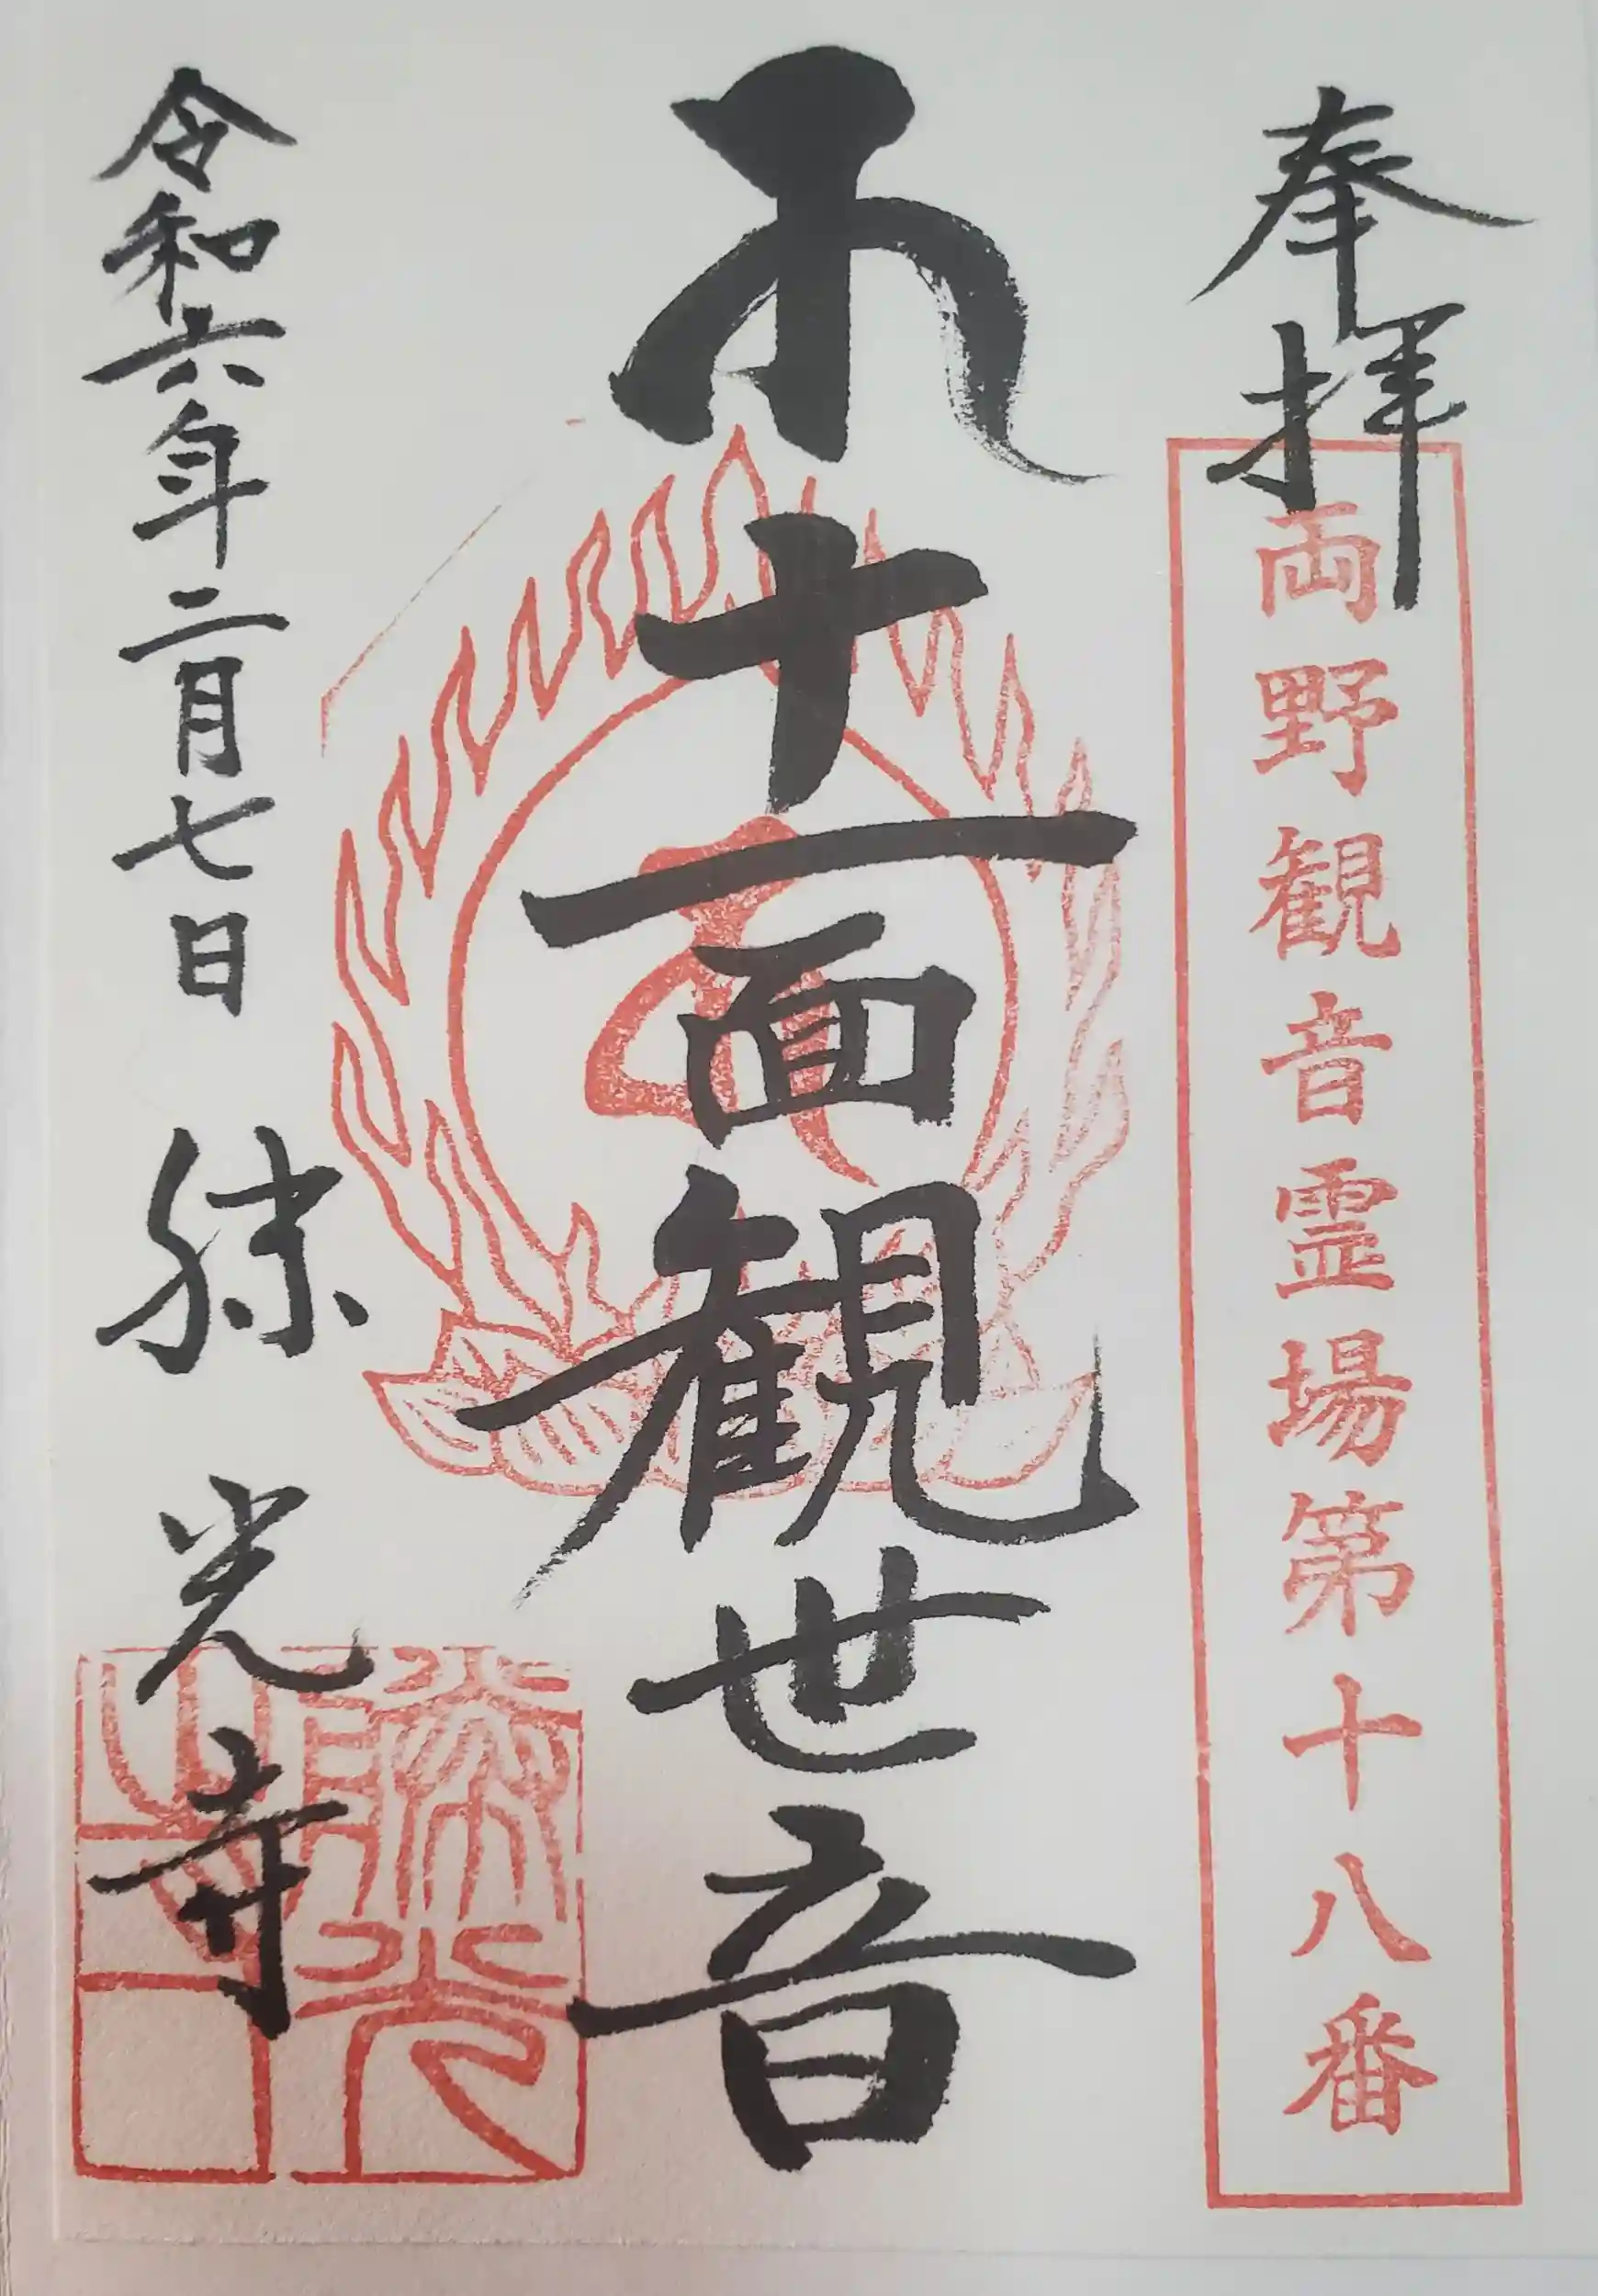 奉拝
両野観音霊場第十八番
十一面観世音
令和六年二月七日 勝光寺